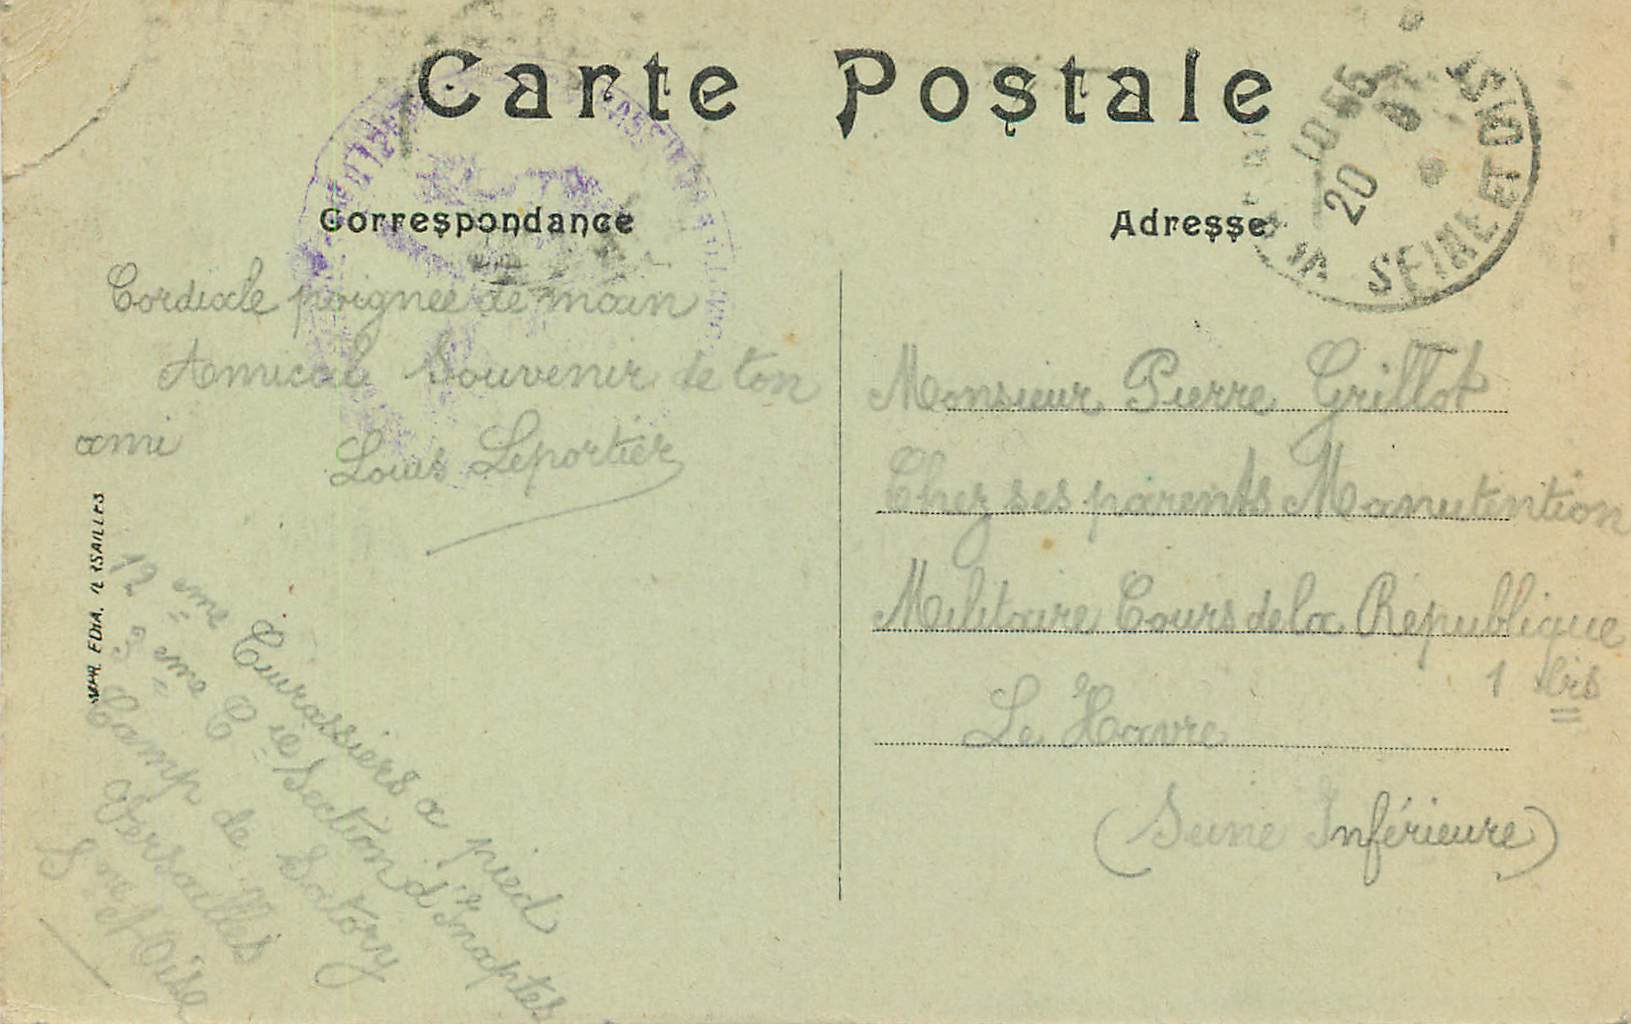 Carte Postale
Correspondance
Adresse
10 55
20
SEINE ET OISE
Cordiale poignée de main
Amical Souvenir de ton
ami Louis Leportier
12 eme Cuirassiers a pied
3 eme C ie Section d'Inaptes
Camp de Satory
Versailles
S ne et Oise
EDIA. VERSAILLES
Monsieur Pierre Grillot
Chez ses parents Manutention
Militaire Cours de la République
1 bis
Le Havre
(Seine Inférieure)